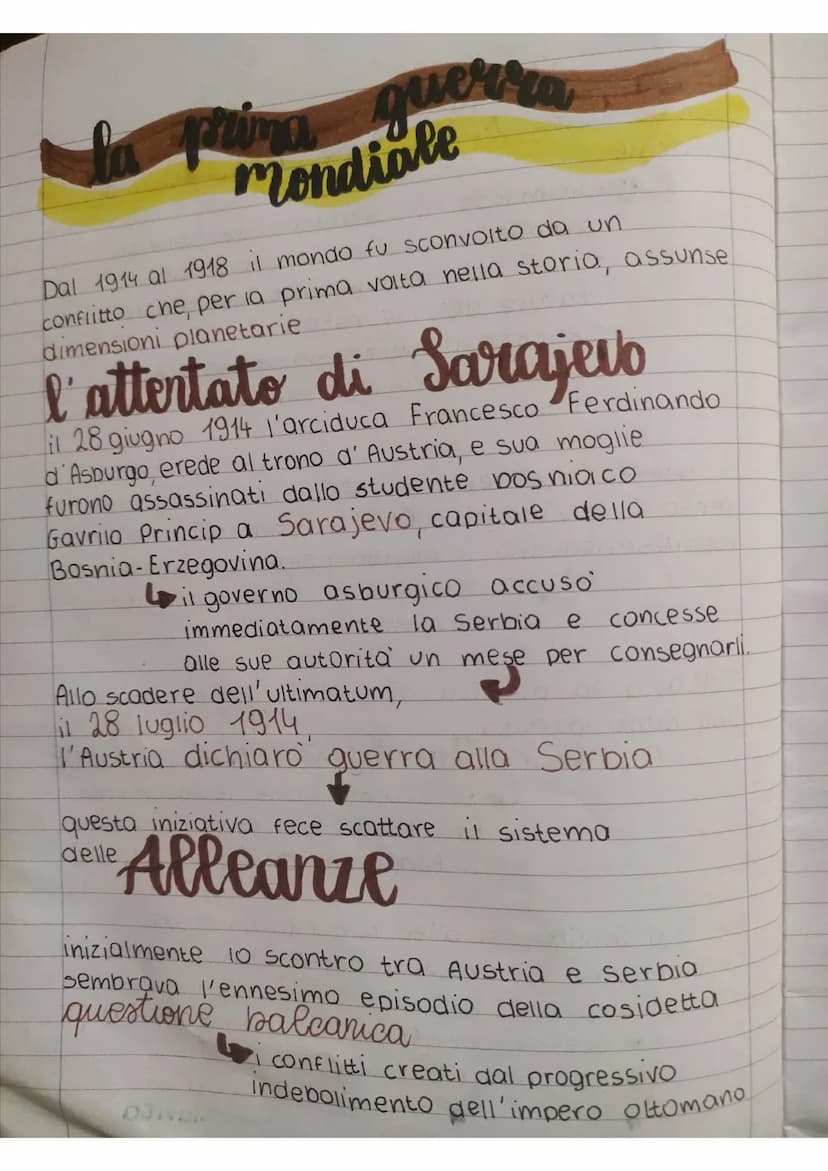 la prima guerra
mondiale
Dal 1914 al 1918 il mondo fu sconvolto da un
conflitto che, per la prima volta nella storia, assunse
dimensioni planetarie
l'attentato di Sarajevo
il 28 giugno 1914 l'arciduca Francesco Ferdinando
d'Asburgo, erede al trono d'Austria, e sua moglie
furono assassinati dallo studente bosniaco
Gavrilo Princip a Sarajevo, capitale della
Bosnia-Erzegovina.
il governo asburgico accusò
immediatamente la Serbia e concesse
alle sue autorità un mese per consegnarli.
Allo scadere dell'ultimatum,
il 28 luglio 1914,
l'Austria dichiarò guerra alla Serbia
questa iniziativa fece scattare il sistema
delle Alleanze
inizialmente lo scontro tra Austria e Serbia
sembrava l'ennesimo episodio della cosidetta
questione balcanica
i conflitti creati dal progressivo
indebolimento dell'impero ottomano